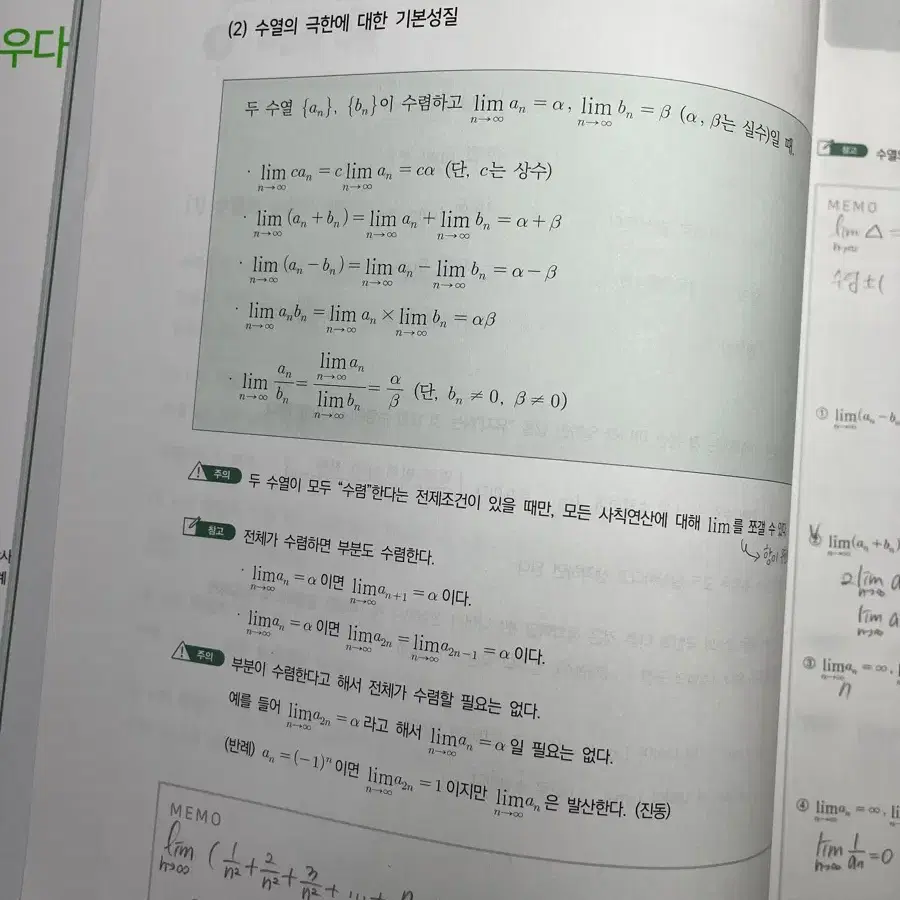 우다
(2) 수열의 극한에 대한 기본성질
두 수열 {aₙ}, {bₙ}이 수렴하고 lim_{n→∞} aₙ = α, lim_{n→∞} bₙ = β (α, β는 실수)일 때,
· lim_{n→∞} caₙ = c lim_{n→∞} aₙ = cα (단, c는 상수)
· lim_{n→∞} (aₙ + bₙ) = lim_{n→∞} aₙ + lim_{n→∞} bₙ = α + β
· lim_{n→∞} (aₙ − bₙ) = lim_{n→∞} aₙ − lim_{n→∞} bₙ = α − β
· lim_{n→∞} aₙbₙ = lim_{n→∞} aₙ × lim_{n→∞} bₙ = αβ
· lim_{n→∞} aₙ/bₙ = lim_{n→∞} aₙ / lim_{n→∞} bₙ = α/β (단, bₙ ≠ 0, β ≠ 0)
주의 두 수열이 모두 “수렴”한다는 전제조건이 있을 때만, 모든 사칙연산에 대해 lim를 쪼갤 수 있다
참고 전체가 수렴하면 부분도 수렴한다.
· lim_{n→∞} aₙ = α 이면 lim_{n→∞} aₙ₊₁ = α 이다.
· lim_{n→∞} aₙ = α 이면 lim_{n→∞} a₂ₙ = lim_{n→∞} a₂ₙ₋₁ = α 이다.
주의 부분이 수렴한다고 해서 전체가 수렴할 필요는 없다.
예를 들어 lim_{n→∞} a₂ₙ = α 라고 해서 lim_{n→∞} aₙ = α 일 필요는 없다.
(반례) aₙ = (−1)ⁿ 이면 lim_{n→∞} a₂ₙ = 1 이지만 lim_{n→∞} aₙ 은 발산한다. (진동)
MEMO
lim_{n→∞} (1/n² + 2/n² + 3/n² + ... +
참고 수열의
MEMO
lim_{n→∞} △ =
① lim_{n→∞} (aₙ − b
② lim_{n→∞} (aₙ + bₙ)
2 lim_{n→∞} a
lim_{n→∞} a
③ lim_{n→∞} aₙ = ∞,
n
④ lim_{n→∞} aₙ = ∞,
lim_{n→∞} 1/aₙ = 0